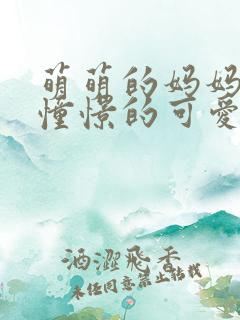 萌萌的妈妈
憧憬的可爱
酒澀飛香
未经同意禁止转载